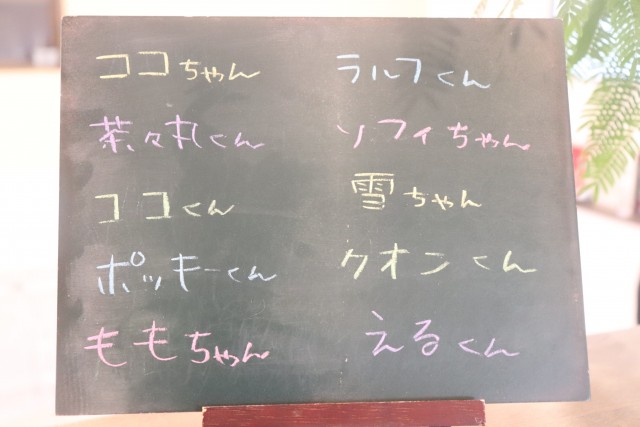 ココちゃん
茶々丸くん
ココくん
ポッキーくん
ももちゃん
ラルフくん
ソフィちゃん
雪ちゃん
クオンくん
えるくん